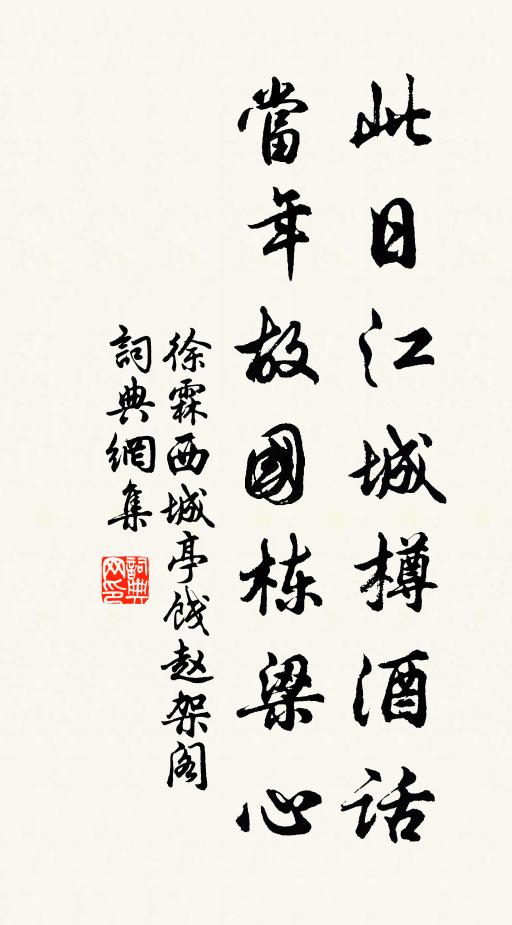 此日江城樽酒話
當年故國栋梁心
徐霖西城亭饯赵架阁
詞典網集
詞典网印